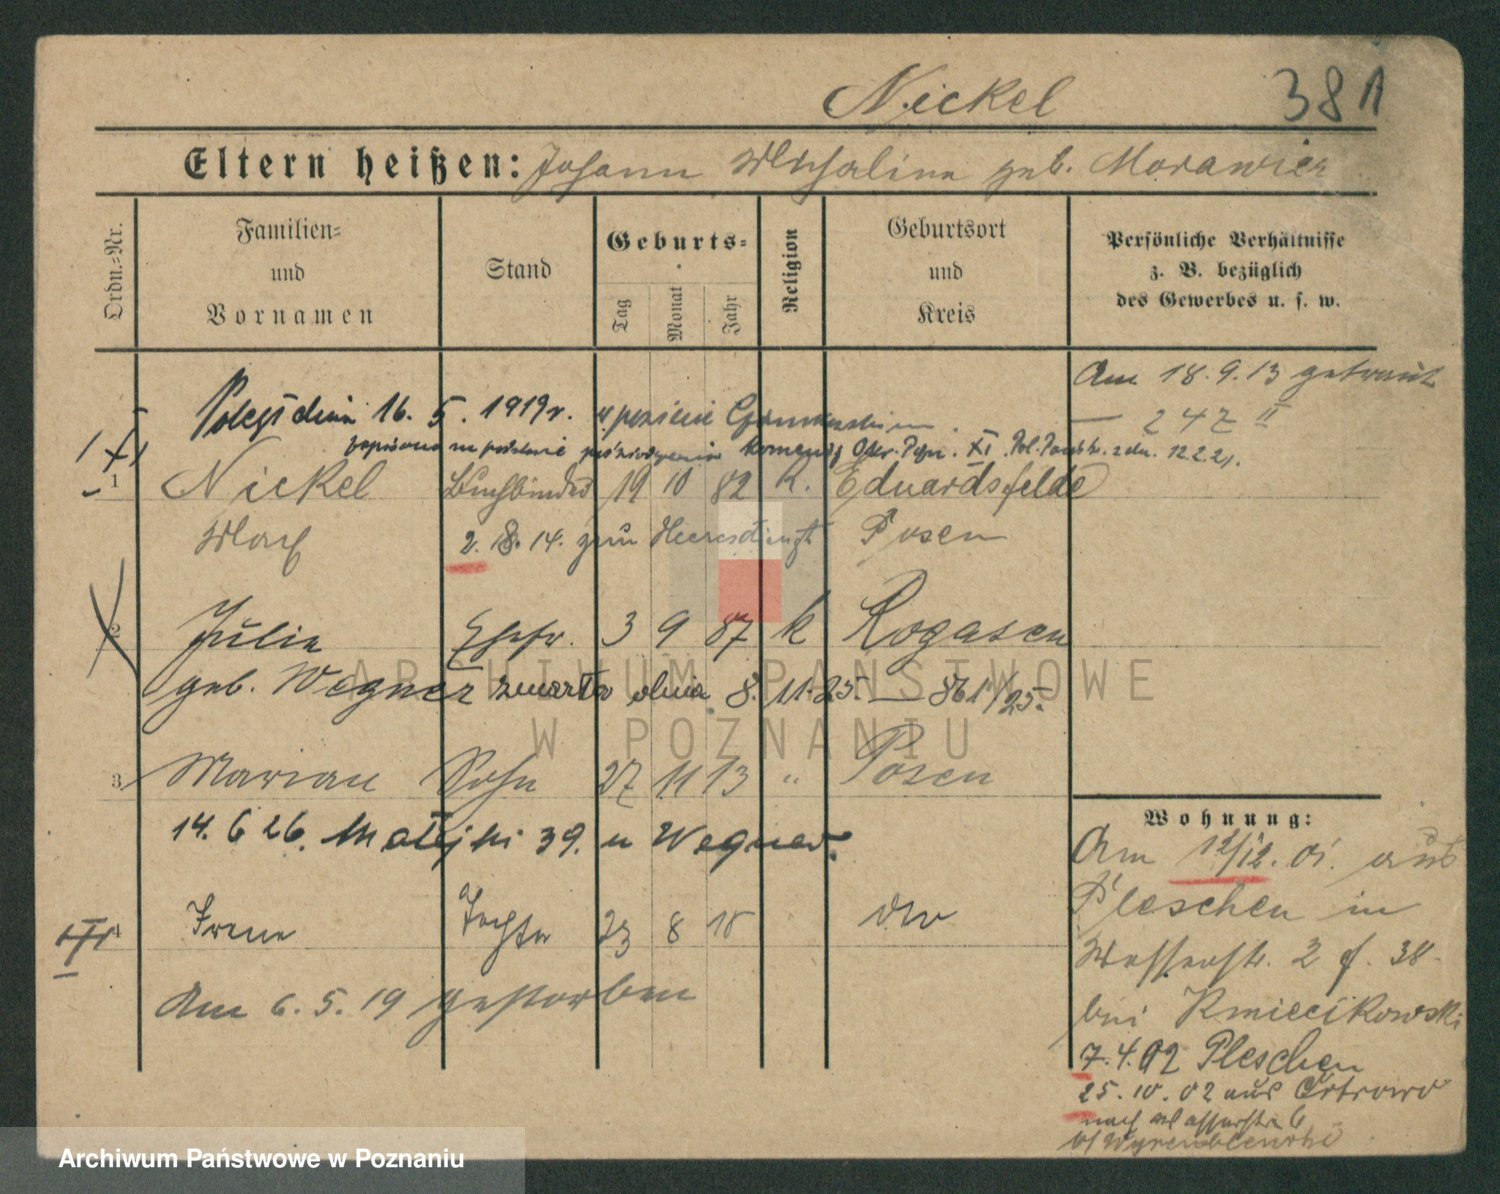 Nickel 38
Eltern heißen: Johann Michalina geb. Morawiec
Ordn.-Nr.
Familien-
und
Vornamen
Stand
Geburts-
Tag
Monat
Jahr
Religion
Geburtsort
und
Kreis
Persönliche Verhältnisse
z. B. bezüglich
des Gewerbes u. s. w.
Am 18.9.13 getraut
— 247 II
Poległ dnia 16. 5. 1919 r. w
zapisano na podstawie poświadczenia Komendy 12.2.21.
1 Nickel Buchbinder 19 10 82 K. Eduardsfelde
2. 18. 14. zum Heeresdienst Posen
2 Julie Ehefr. 3 9 87 k Rogasen
geb. Wegner zmarła dnia 8. 11. 25. — 861/25.
3 Marian Sohn 27 11 13 " Posen
14. 6 26. Matejki 39. u Wegner.
4 Irene Tochter 23 8 18 dto
Am 6. 5. 19 gestorben
Wohnung:
Am 12/12. 01. aus
Pleschen in
Wasserstr. 2 f. 38
bei Kmiecikowski
7. 4. 02 Pleschen
25. 10. 02 aus Ostrowo
nach Wasserstr. 6
ARCHIWUM PAŃSTWOWE
W POZNANIU
Archiwum Państwowe w Poznaniu